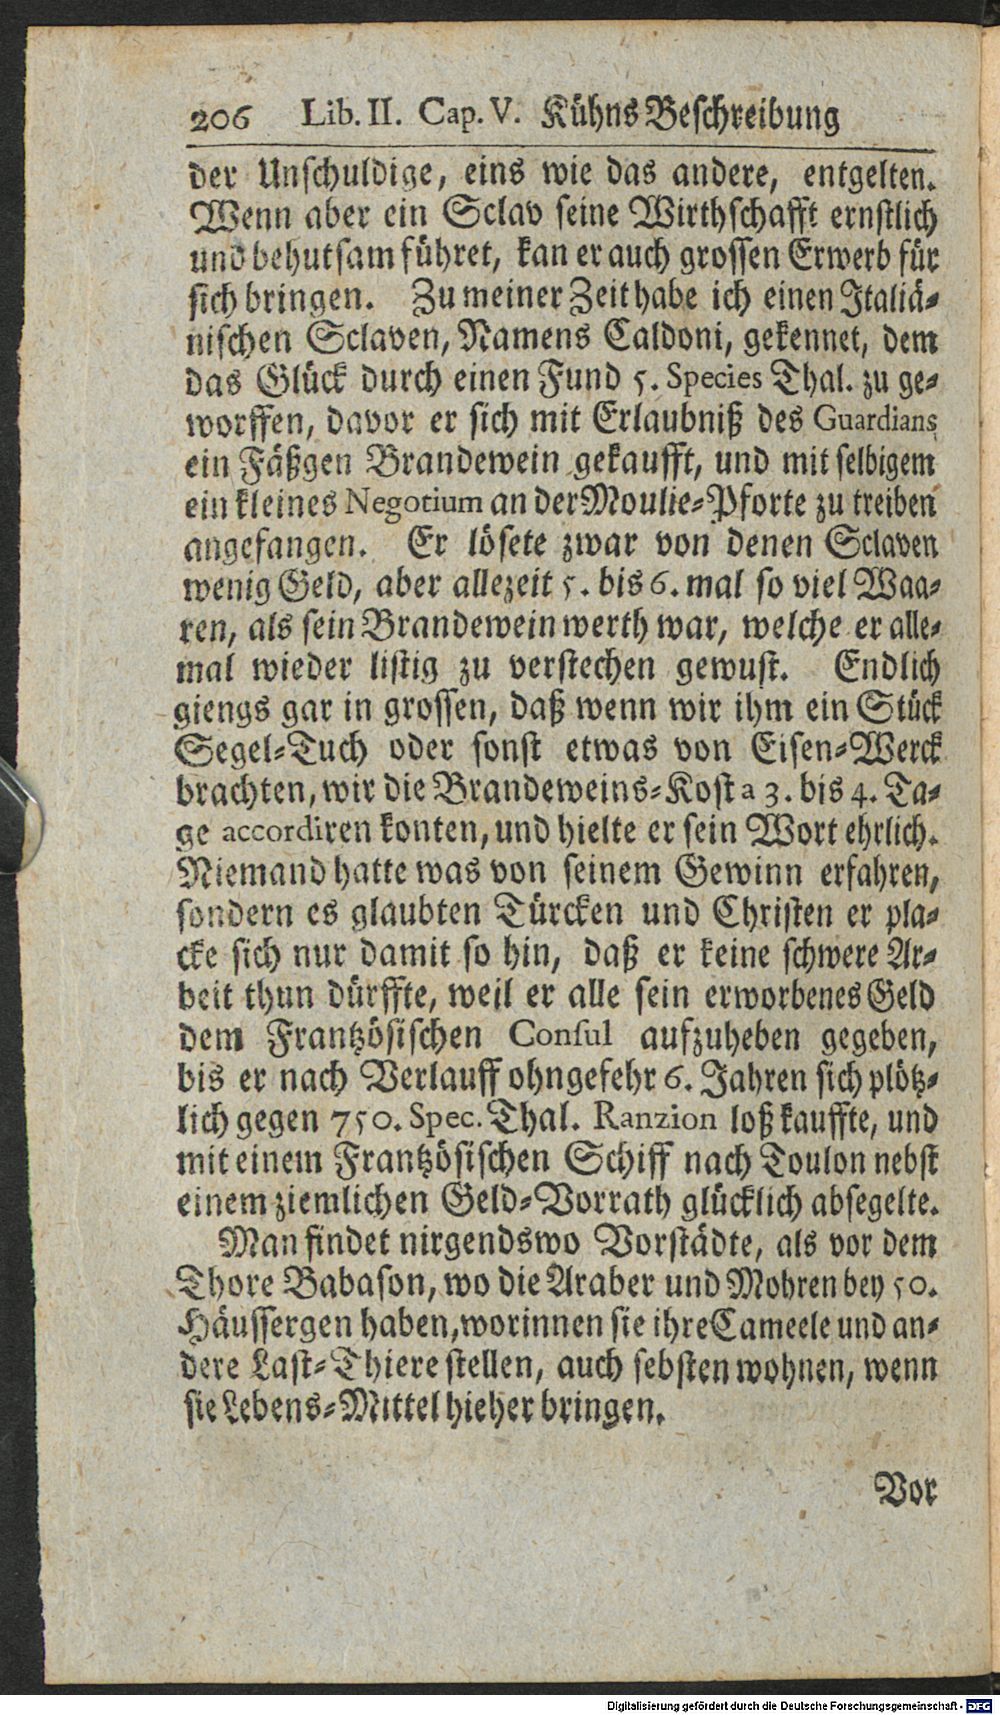 206 Lib. II. Cap. V. Kühns Beschreibung
der Unschuldige, eins wie das andere, entgelten.
Wenn aber ein Sclav seine Wirthschafft ernstlich
und behutsam führet, kan er auch grossen Erwerb für
sich bringen. Zu meiner Zeit habe ich einen Italiä-
nischen Sclaven, Namens Caldoni, gekennet, dem
das Glück durch einen Fund 5. Species Thal. zu ge-
worffen, davor er sich mit Erlaubniß des Guardians
ein Fäßgen Brandewein gekaufft, und mit selbigem
ein kleines Negotium an der Moulie-Pforte zu treiben
angefangen. Er lösete zwar von denen Sclaven
wenig Geld, aber allezeit 5. bis 6. mal so viel Waa-
ren, als sein Brandewein werth war, welche er alle-
mal wieder listig zu verstechen gewust. Endlich
giengs gar in grossen, daß wenn wir ihm ein Stück
Segel-Tuch oder sonst etwas von Eisen-Werck
brachten, wir die Brandeweins-Kost a 3. bis 4. Ta-
ge accordiren konten, und hielte er sein Wort ehrlich.
Niemand hatte was von seinem Gewinn erfahren,
sondern es glaubten Türcken und Christen er pla-
cke sich nur damit so hin, daß er keine schwere Ar-
beit thun dürffte, weil er alle sein erworbenes Geld
dem Frantzösischen Consul aufzuheben gegeben,
bis er nach Verlauff ohngefehr 6. Jahren sich plötz-
lich gegen 750. Spec. Thal. Ranzion loß kauffte, und
mit einem Frantzösischen Schiff nach Toulon nebst
einem ziemlichen Geld-Vorrath glücklich absegelte.
Man findet nirgendswo Vorstädte, als vor dem
Thore Babason, wo die Araber und Mohren bey 50.
Häussergen haben, worinnen sie ihre Cameele und an-
dere Last-Thiere stellen, auch sebsten wohnen, wenn
sie Lebens-Mittel hieher bringen.
Vor
Digitalisierung gefördert durch die Deutsche Forschungsgemeinschaft - DFG